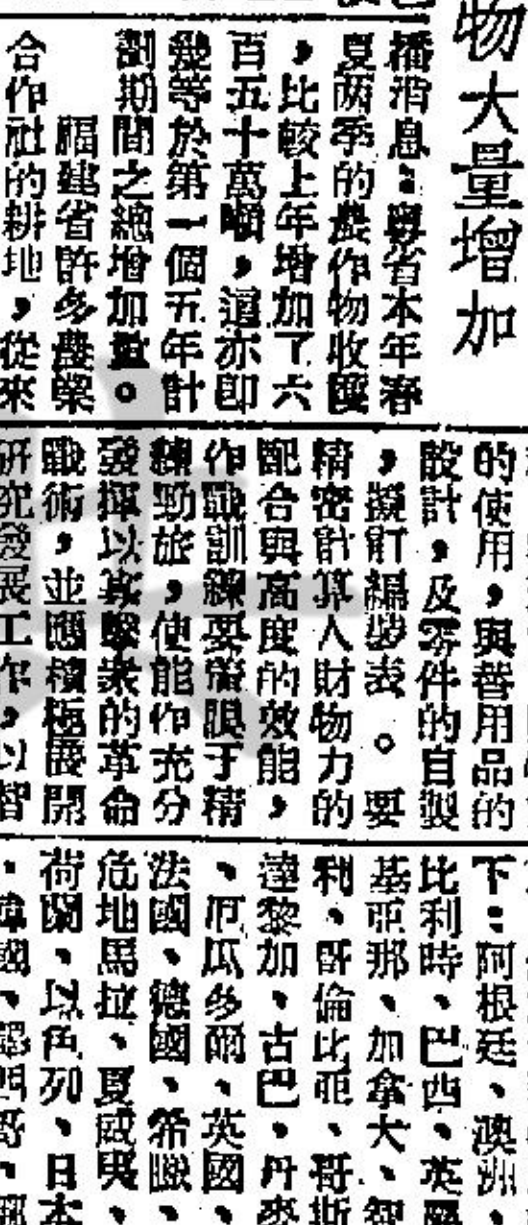 物大量增加
播消息：粵省本年春
夏两季的農作物收穫
，比較上年增加了六
百五十萬噸，這亦即
幾等於第一個五年計
劃期間之總增加量。
福建省許多農業
合作社的耕地，從來
的使用，與替用品的
設計，及零件的自製
，擬訂編裝表。要
精密計算人財物力的
配合與高度的效能，
作戰訓練要着眼于精
練勁旅，使能作充分
發揮以寡擊衆的革命
戰術，並應積極展開
研究發展工作，以智
下：阿根廷、澳洲、
比利時、巴西、英屬
基亞那、加拿大、智
利、哥倫比亞、哥斯
達黎加、古巴、丹麥
、厄瓜多爾、英國、
法國、德國、希臘、
危地馬拉、夏威夷、
荷蘭、以色列、日本
、韓國、